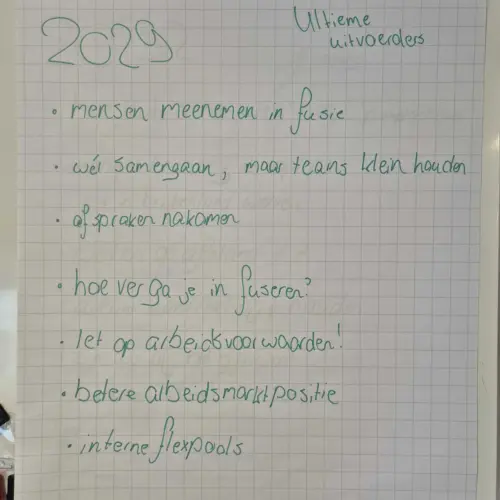 2029
Ultieme
uitvoerders
• mensen meenemen in fusie
• wél samengaan, maar teams klein houden
• afspraken nakomen
• hoe ver ga je in fuseren?
• let op arbeidsvoorwaarden!
• betere arbeidsmarktpositie
• interne flexpools